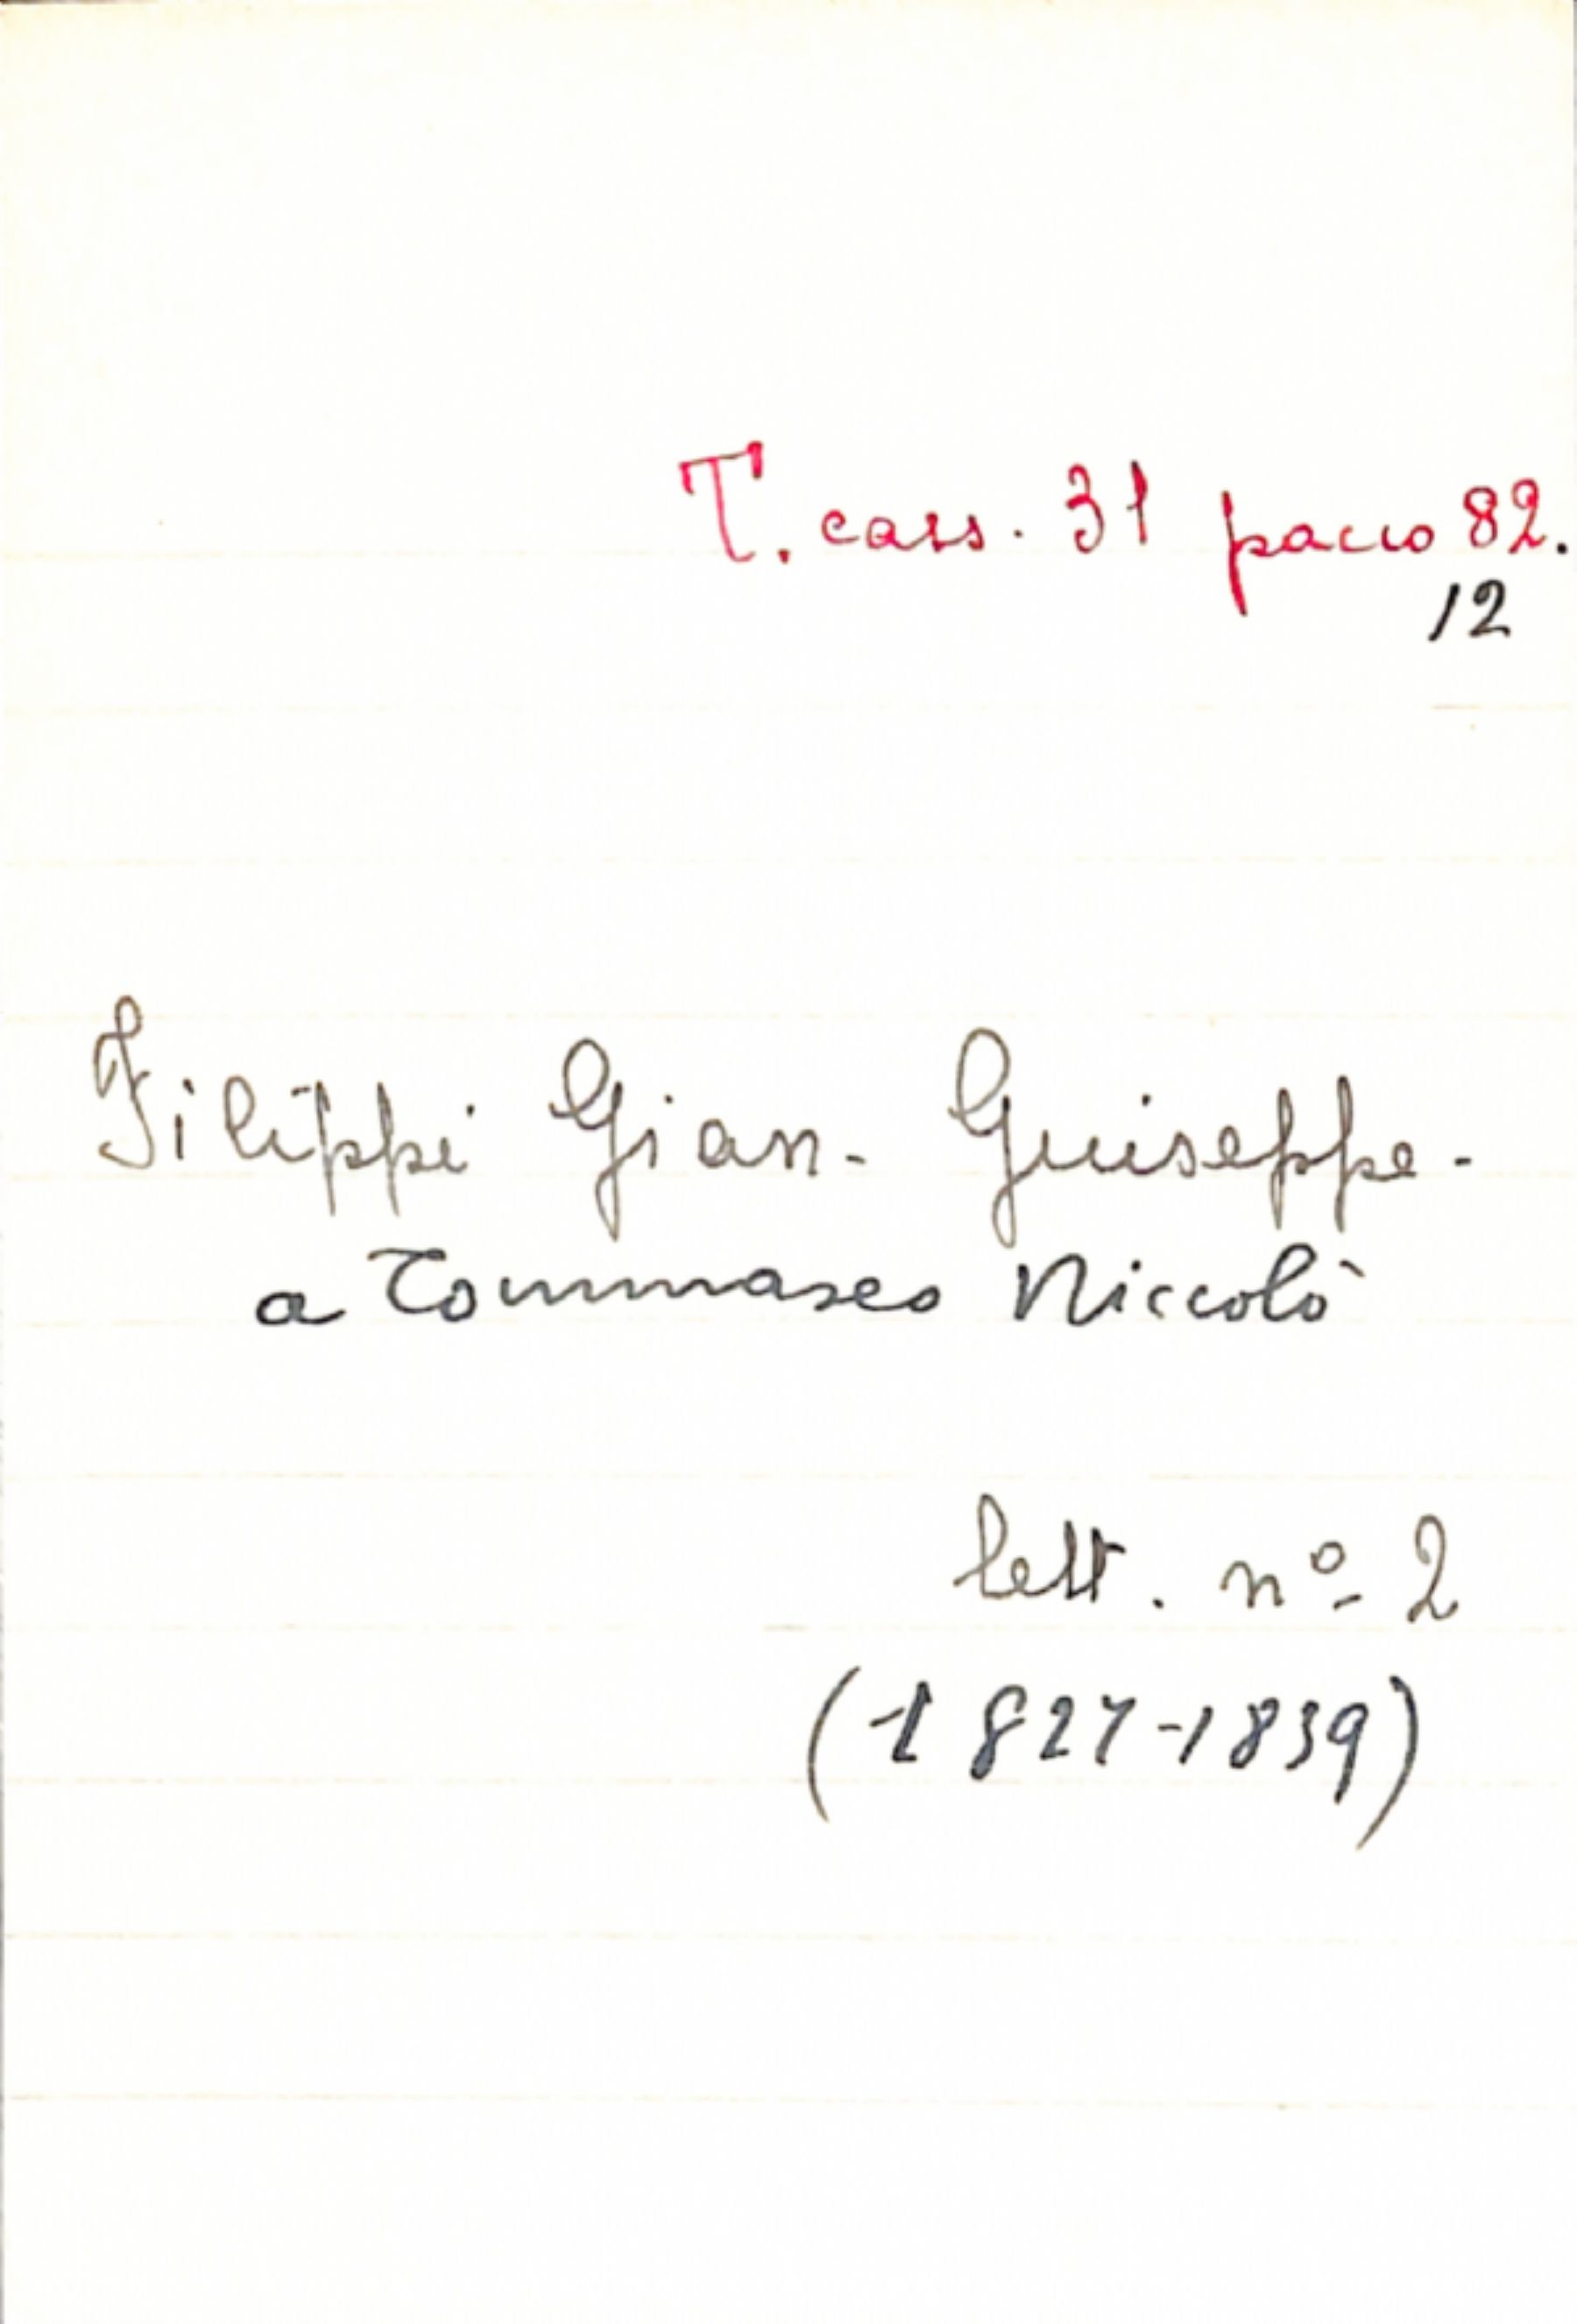 T. cass. 31 pacco 82.
12
Filippi Gian. Giuseppe.
a Tommaseo Niccolò
lett. nº 2
(1827-1839)